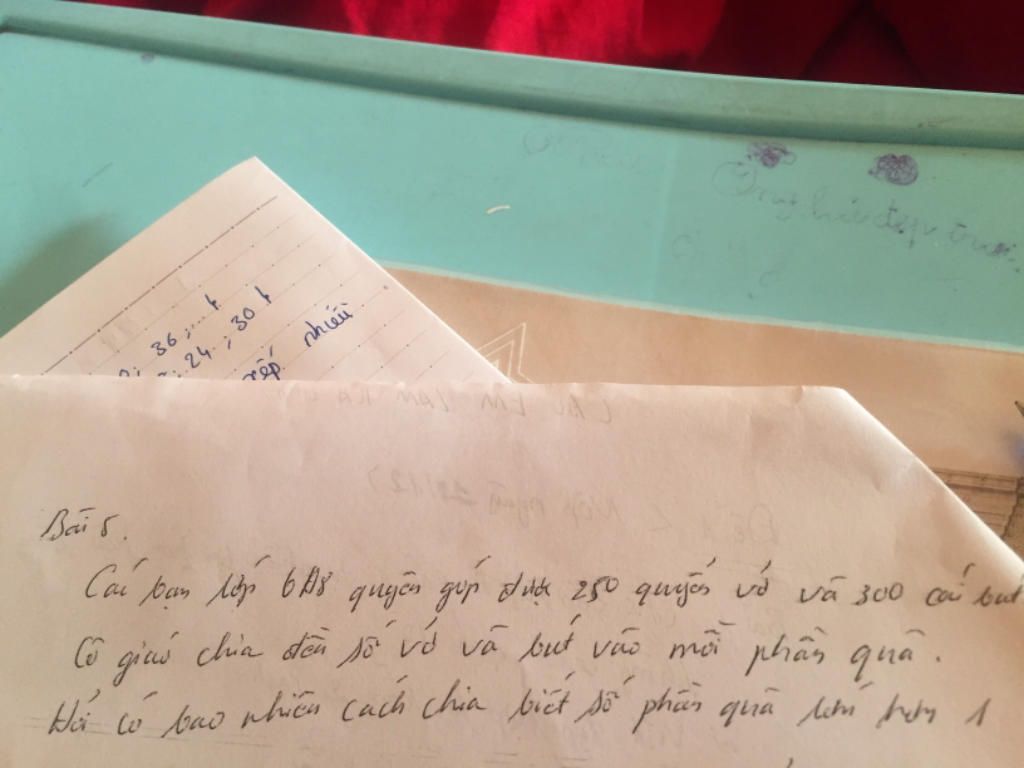 36; ...
24; 30
xếp nhiều
Bài 5.
Các bạn lớp 6A8 quyên góp được 250 quyển vở và 300 cái bút
Cô giáo chia đều số vở và bút vào mỗi phần quà.
Hỏi có bao nhiêu cách chia biết số phần quà lớn hơn 1